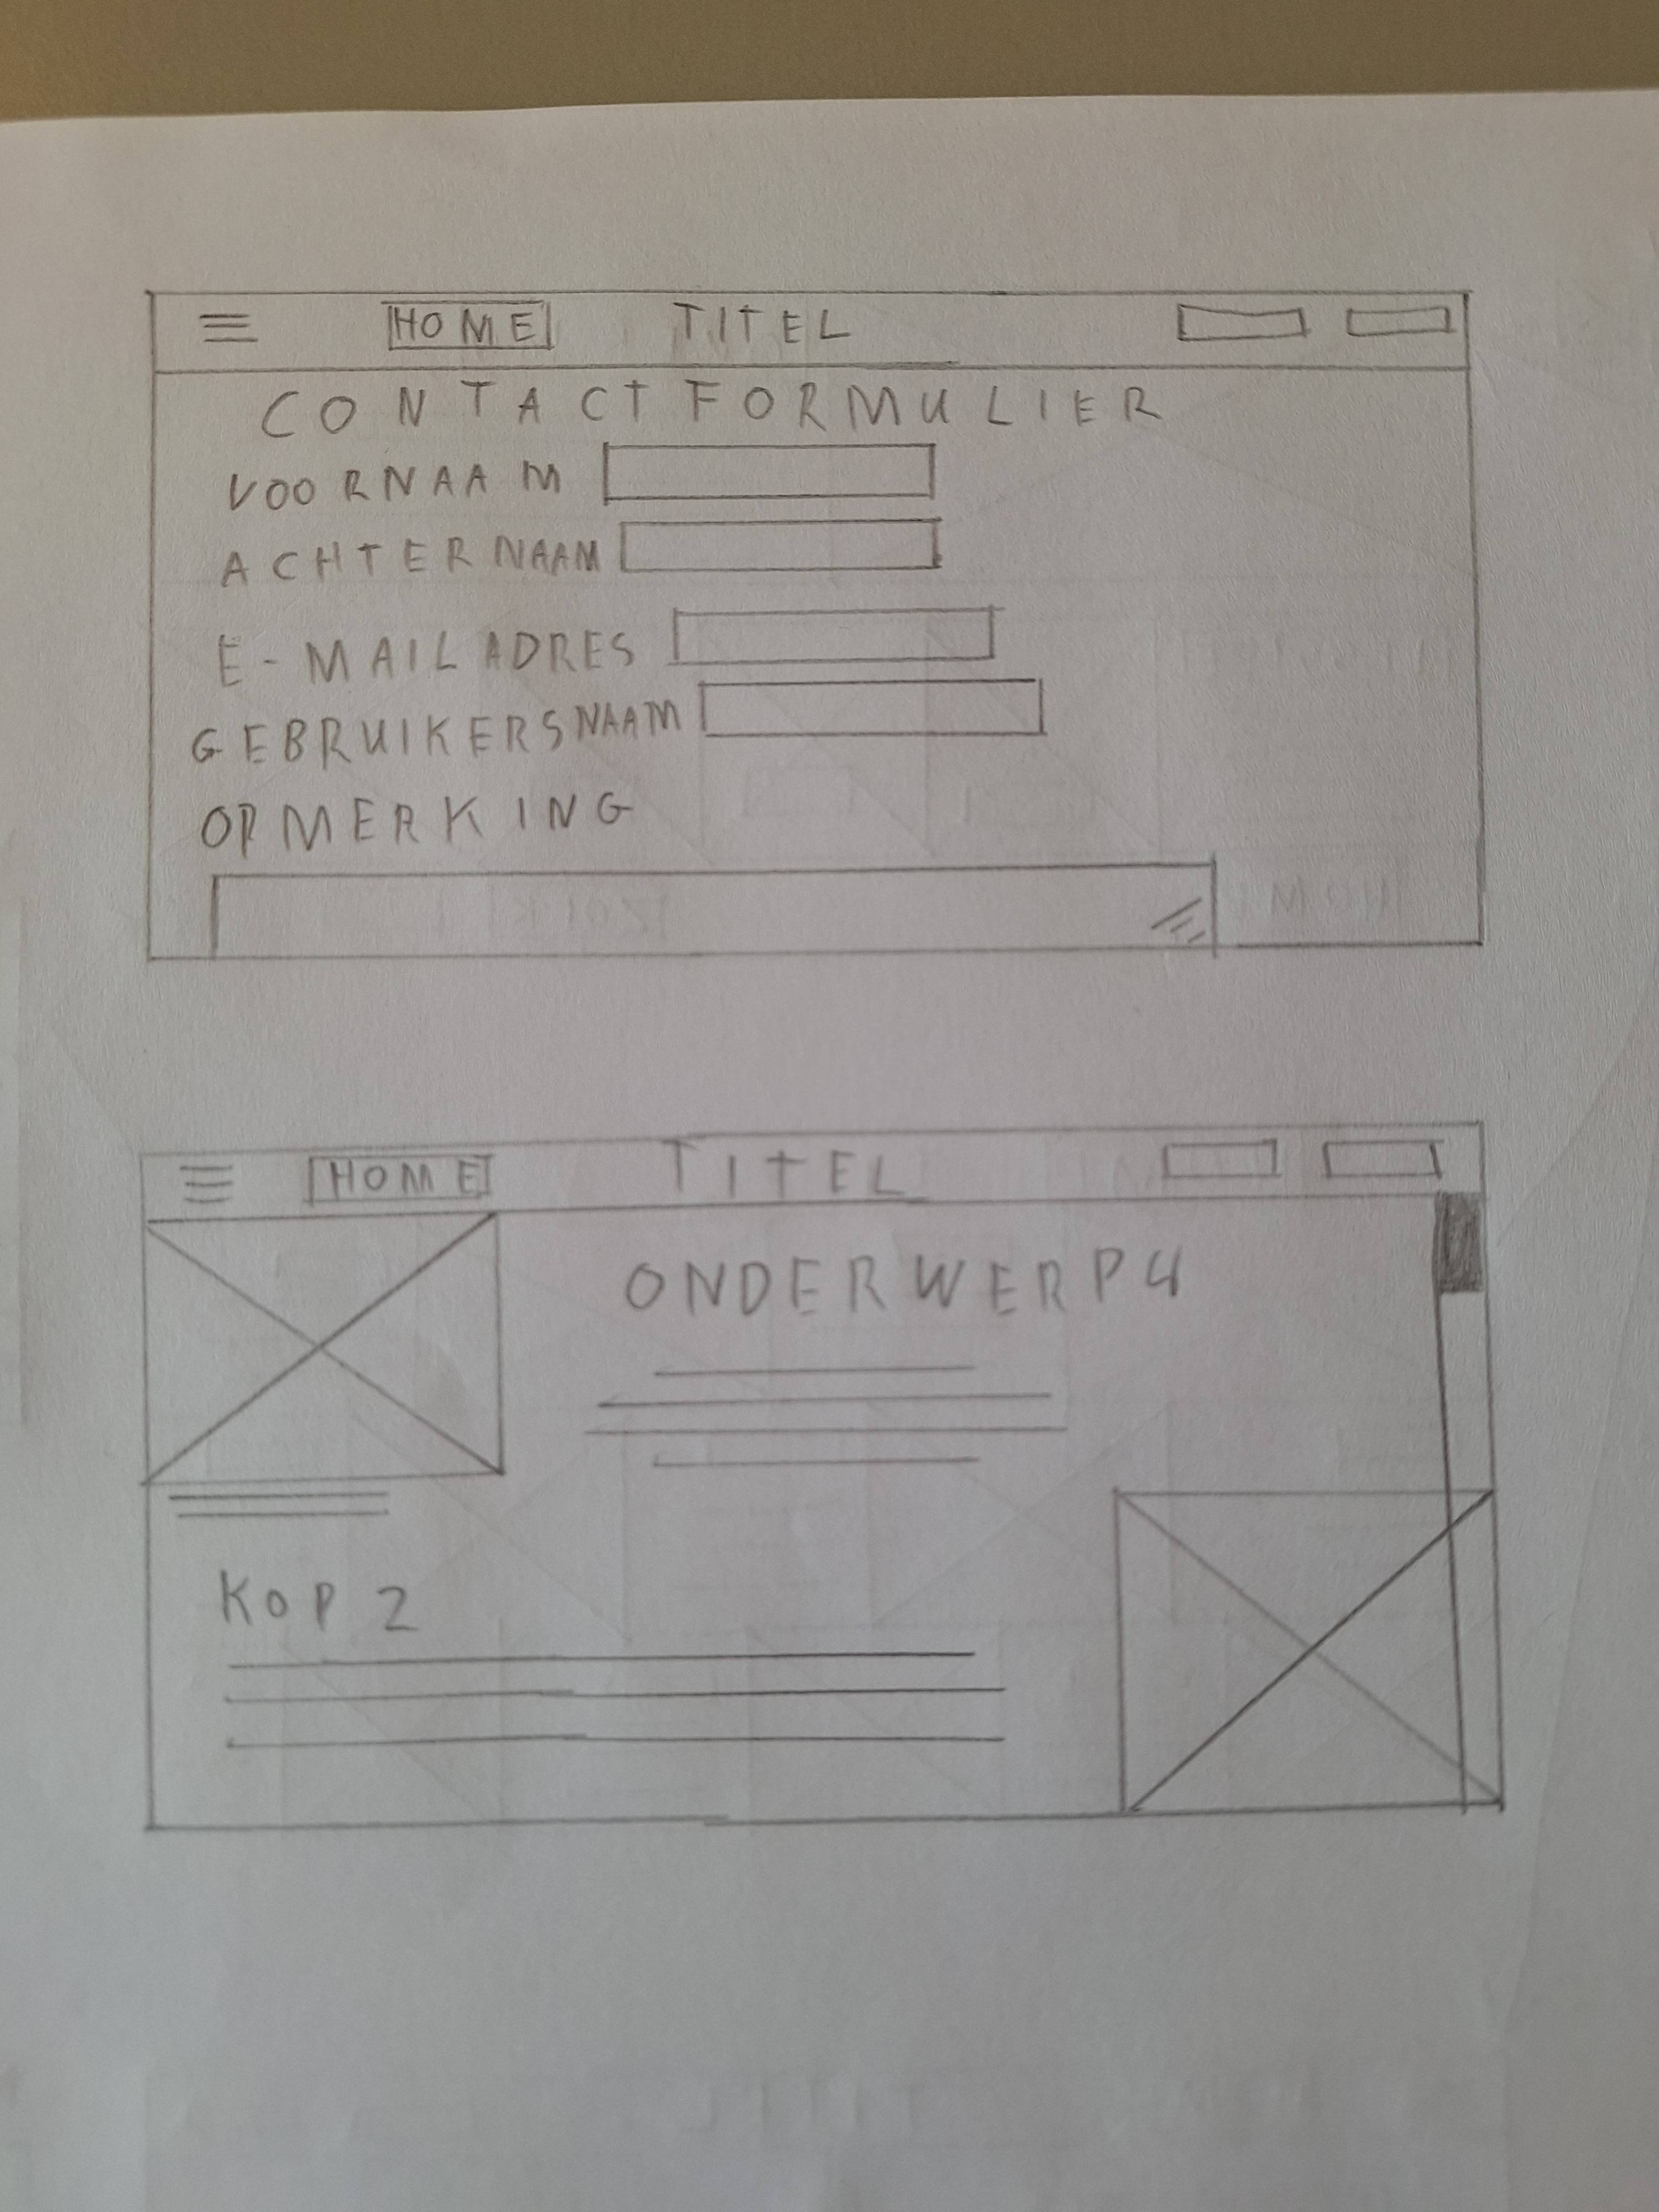 HOME TITEL
CONTACTFORMULIER
VOORNAAM
ACHTERNAAM
E-MAILADRES
GEBRUIKERSNAAM
OPMERKING
HOME TITEL
ONDERWERP 4
KOP 2